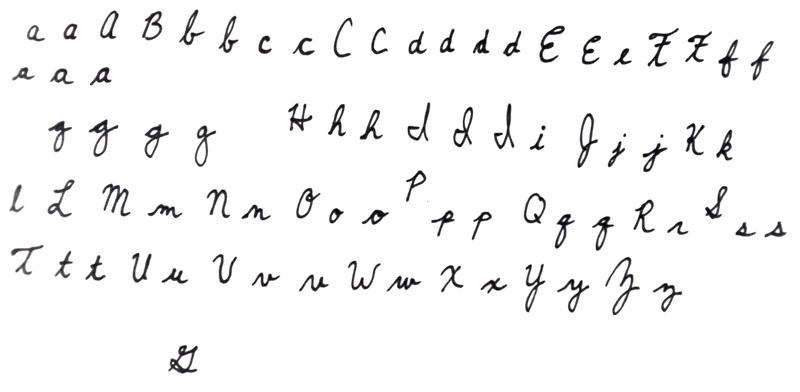 a a A B b b c c C C d d d d E E e F F f f
a a a
g g g g H h h d d d i J j j K k
l L M m N n O o o P p p Q q q R r S s s
T t t U u V v v W w X x Y y Z z
G